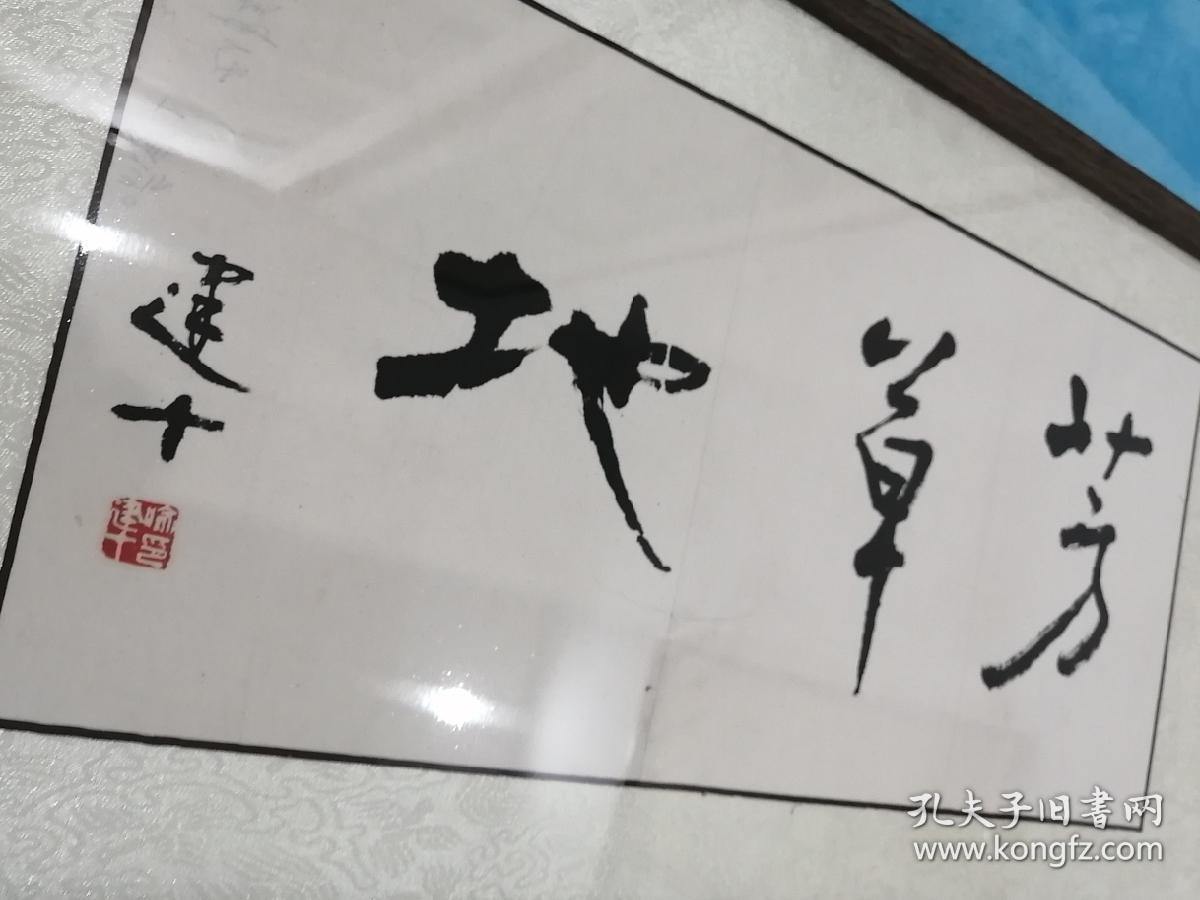 芳草地
建十
喻印建十
孔夫子旧书网
www.kongfz.com